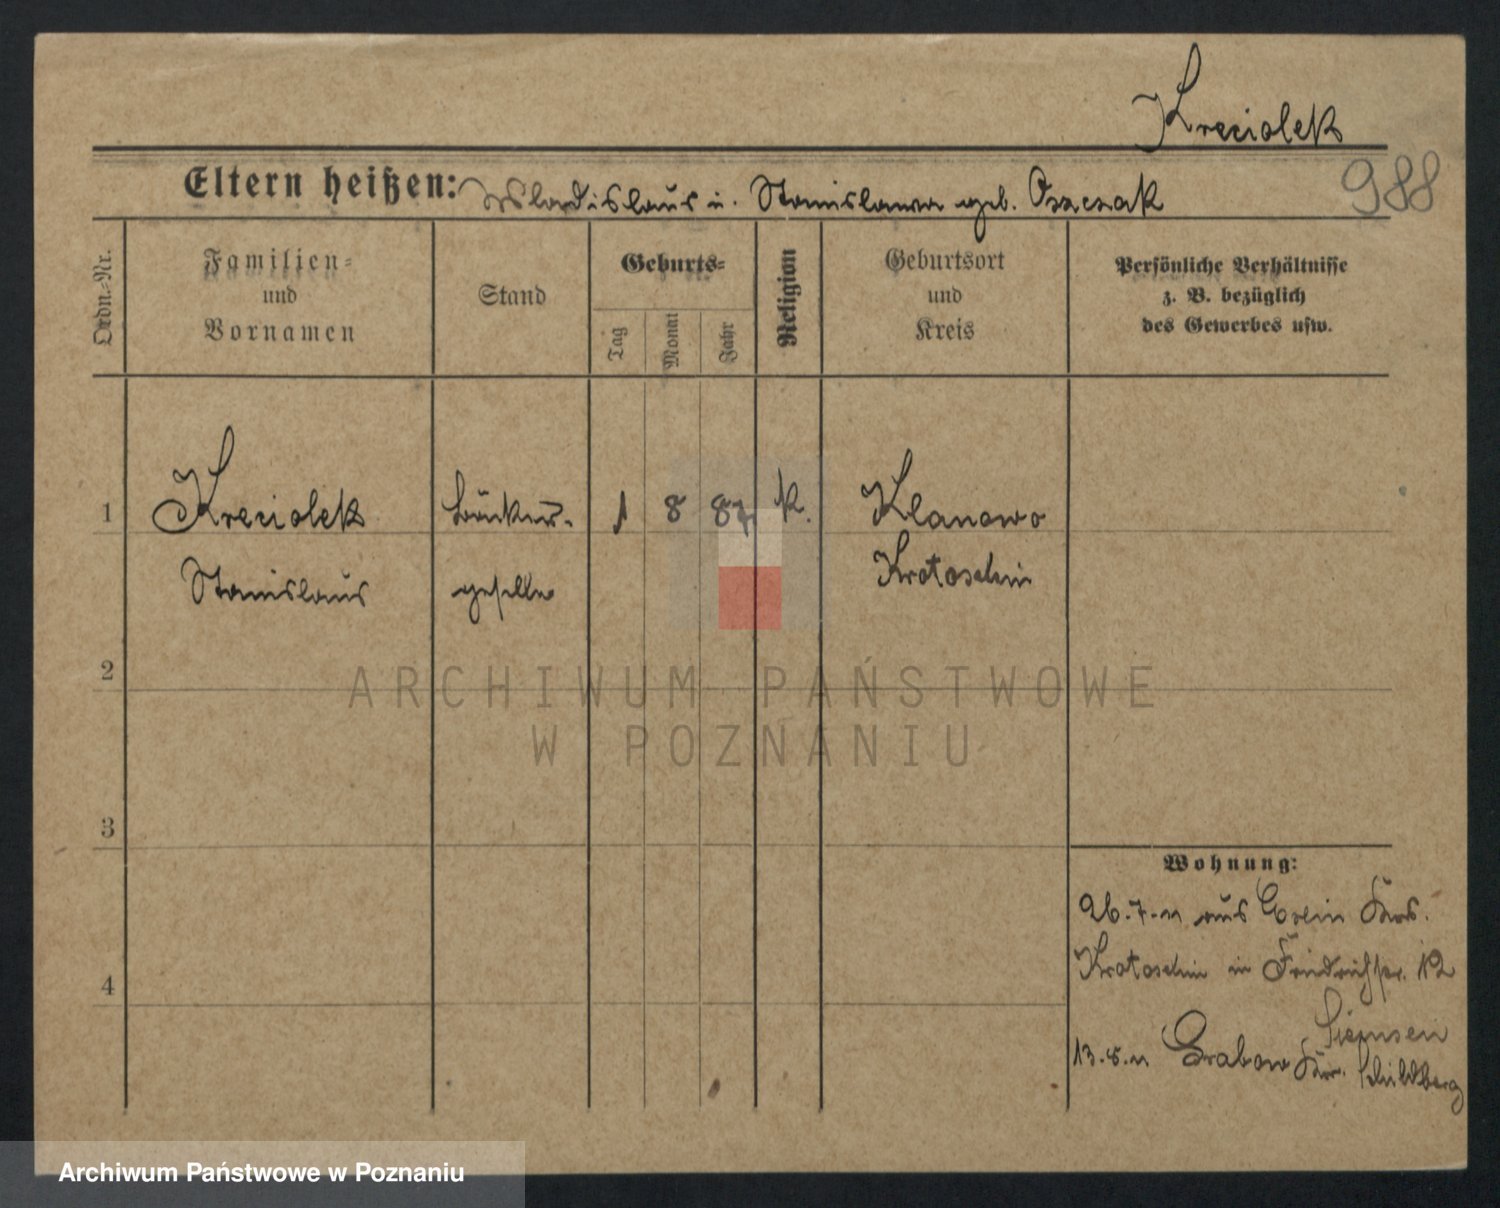 Kreciolek
988
Eltern heißen: Wladislaus u. Stanislawa geb. Oszczak
Ordn.-Nr.
Familien-
und
Vornamen
Stand
Geburts-
Tag
Monat
Jahr
Religion
Geburtsort
und
Kreis
Persönliche Verhältnisse
z. B. bezüglich
des Gewerbes usw.
1
Kreciolek
Bäcker-
1 8 87
K.
Klanowo
Stanislaus
geselle
Krotoschin
2
ARCHIWUM PAŃSTWOWE
W POZNANIU
3
Wohnung:
26.7.11 aus
Krotoschin in Friedrichstr. 12
Siemsen
4
13.5.11 Grabow Kr. Schildberg
Archiwum Państwowe w Poznaniu